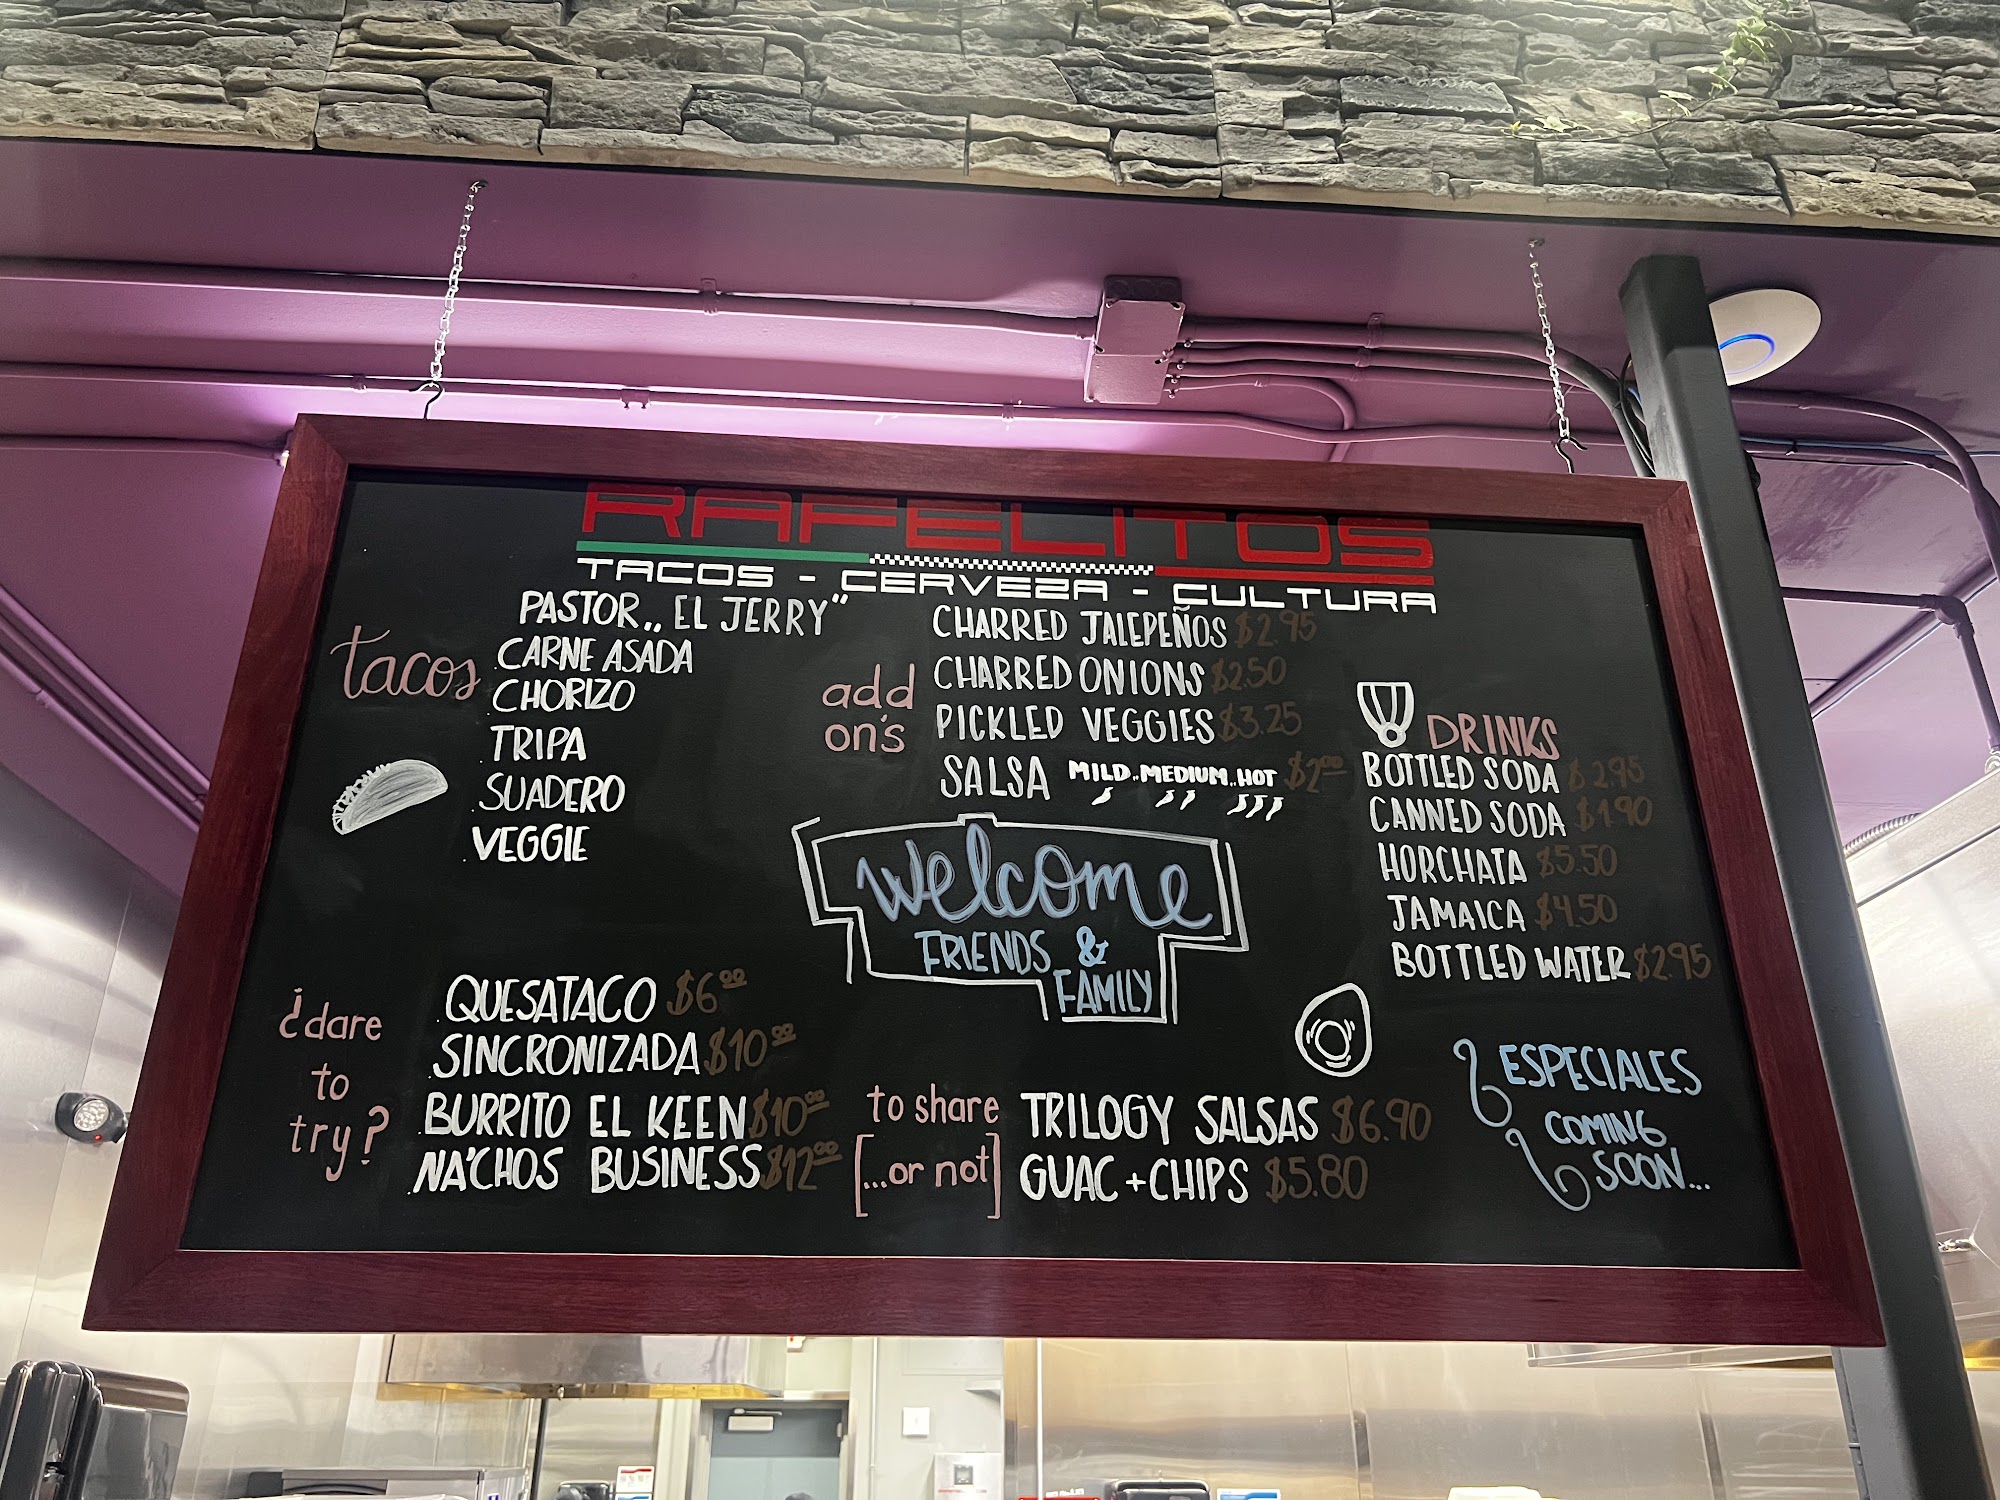 RAFELITOS
TACOS - CERVEZA - CULTURA
tacos
PASTOR,, EL JERRY"
CARNE ASADA
CHORIZO
TRIPA
SUADERO
VEGGIE
add on's
CHARRED JALEPEÑOS $2.95
CHARRED ONIONS $2.50
PICKLED VEGGIES $3.25
SALSA MILD..MEDIUM..HOT
DRINKS
BOTTLED SODA $2.95
CANNED SODA $1.90
HORCHATA $5.50
JAMAICA $4.50
BOTTLED WATER $2.95
welcome
FRIENDS &
FAMILY
¿dare
to
try?
QUESATACO $6.00
SINCRONIZADA $10.00
BURRITO EL KEEN $10.00
NA'CHOS BUSINESS $12.00
to share
[...or not]
TRILOGY SALSAS $6.90
GUAC+CHIPS $5.80
ESPECIALES
COMING
SOON...